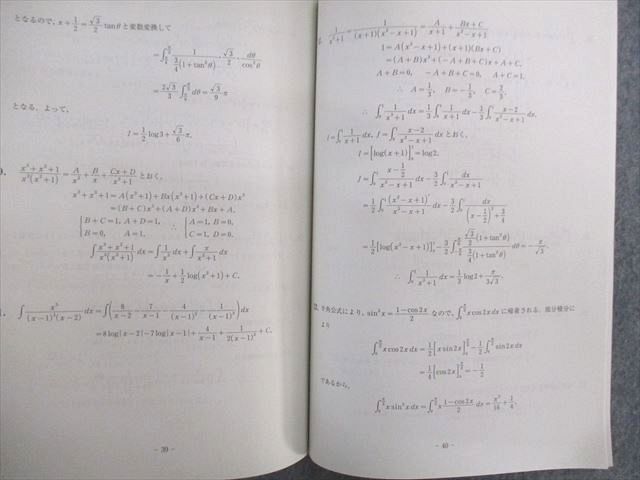 となるので，x+1/2=√3/2 tanθと変数変換して
=∫ 1/(3/4(1+tan²θ)) · √3/2 · dθ/cos²θ
=2√3/3 ∫ dθ=√3/9 π
となる．よって，
I=1/2 log3+√3/6 π.
(x³+x²+1)/(x²(x²+1))=A/x²+B/x+(Cx+D)/(x²+1) とおく．
x³+x²+1=A(x²+1)+Bx(x²+1)+(Cx+D)x²
=(B+C)x³+(A+D)x²+Bx+A,
{B+C=1, A+D=1, ∴ {A=1, B=0,
B=0, A=1. C=1, D=0.
∫(x³+x²+1)/(x²(x²+1)) dx=∫1/x² dx+∫x/(x²+1) dx
=-1/x+1/2 log(x²+1)+C.
∫x³/((x-1)³(x-2)) dx=∫(8/(x-2)-7/(x-1)-4/(x-1)²-1/(x-1)³)dx
=8log|x-2|-7log|x-1|+4/(x-1)+1/(2(x-1)²)+C.
- 39 -
1/(x³+1)=1/((x+1)(x²-x+1))=A/(x+1)+(Bx+C)/(x²-x+1)
1=A(x²-x+1)+(x+1)(Bx+C)
=(A+B)x²+(-A+B+C)x+A+C,
A+B=0, -A+B+C=0, A+C=1.
∴ A=1/3, B=-1/3, C=2/3.
∴ ∫₀¹ 1/(x³+1) dx=1/3∫₀¹ 1/(x+1) dx-1/3∫₀¹ (x-2)/(x²-x+1) dx.
I=∫₀¹ 1/(x+1) dx, J=∫₀¹ (x-2)/(x²-x+1) dx とおく．
I=[log(x+1)]₀¹=log2,
J=∫₀¹ (x-1/2)/(x²-x+1) dx-3/2∫₀¹ dx/(x²-x+1)
=1/2∫₀¹ (x²-x+1)′/(x²-x+1) dx-3/2∫₀¹ dx/((x-1/2)²+3/4)
=1/2[log(x²-x+1)]₀¹-3/2∫ (√3/2(1+tan²θ))/(3/4(1+tan²θ)) dθ=-π/√3.
∴ ∫₀¹ 1/(x³+1) dx=1/3 log2+π/(3√3).
半角公式により，sin²x=(1-cos2x)/2 なので，∫x cos2x dx に帰着される．部分積分に
より
∫x cos2x dx=1/2[x sin2x]-1/2∫sin2x dx
=1/4[cos2x]=-1/2
であるから，
∫x sin²x dx=∫x (1-cos2x)/2 dx=π²/16+1/4.
- 40 -